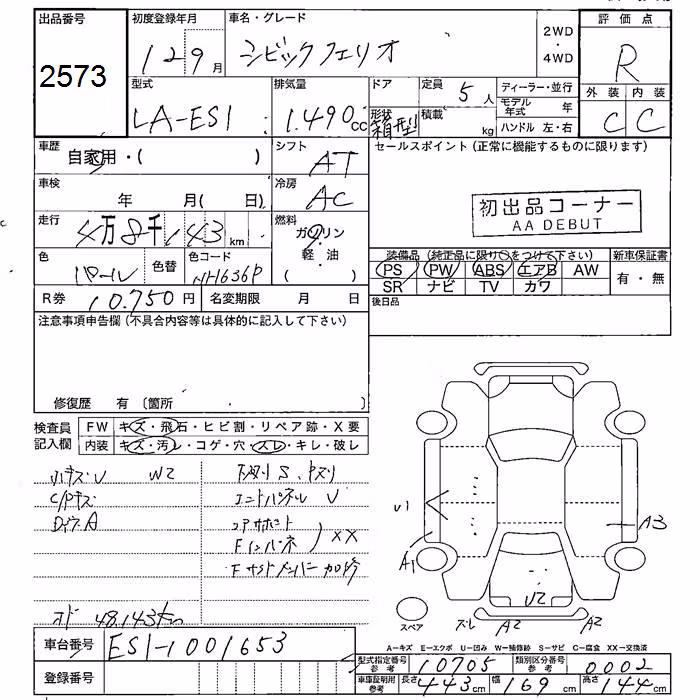 出品番号
2573
初度登録年月
12 9 月
車名・グレード
シビックフェリオ
2WD
・
4WD
評価点
R
外装 内装
C C
型式
LA-ES1
排気量
1.490 cc
ドア
形状
箱型
定員
5 人
積載
kg
ディーラー・並行
モデル年式 年
ハンドル 左・右
車歴
自家用・( )
シフト
AT
セールスポイント(正常に機能するものに限ります)
車検
年 月( 日)
冷房
AC
初出品コーナー
AA DEBUT
走行
4万8千143 km
燃料
ガソリン
軽・油
( )
色
パール
色替
色コード
NH636P
装備品(純正品に限り○をつけて下さい)
PS PW ABS エアB AW
SR ナビ TV カワ
新車保証書
有・無
R券 10.750円
名変期限 月 日
後日品
注意事項申告欄(不具合内容等は具体的に記入して下さい)
修復歴 有(箇所 )
検査員
記入欄
FW キズ・飛石・ヒビ割・リペア跡・X要
内装 キズ・汚レ・コゲ・穴・スレ・キレ・破レ
小キズU W2
C/Pキズ
下廻りS、キズリ
エンドパネルU
コアサポート
Fインパネ
XX
Fサイドメンバー
オド 48.143km
U1
A1
A3
U2
スペア
ズレ A2 A2
A−キズ E−エクボ U−凹み W−補修跡 S−サビ C−腐食 XX−交換済
車台番号
ES1-1001653
登録番号
型式指定番号
参考
10705
類別区分番号
参考
0002
車庫証明用
参考
長さ 443cm 幅 169cm 高さ 144cm